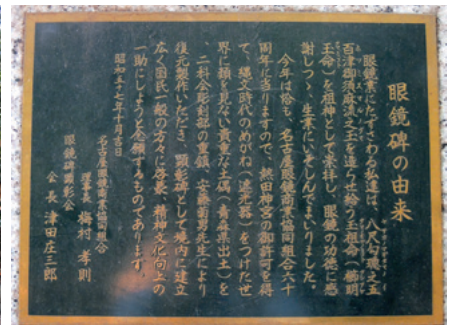 眼鏡碑の由来
眼鏡業にたずさわる私達は、八尺瓊環之五
百津御須麻流之玉を造らせ給う玉祖命(櫛明
玉命)を祖神として崇拝し、眼鏡の功徳に感
謝しつゝ、生業にいそしんでまいりました。
今年は恰も、名古屋眼鏡商業協同組合六十
周年に当りますので、熱田神宮の御許可を得
て、縄文時代のめがね(遮光器)をつけた世
界に類を見ない貴重な土偶(青森県出土)を
、二科会彫刻部の重鎮、安藤菊男先生により
復元製作いただき、顕彰碑として境内に建立
広く国民一般の方々に啓蒙、精神文化向上の
一助にしようと念願するものであります。
昭和五十七年十月吉日
名古屋眼鏡商業協同組合
理事長 梅村孝則
眼鏡碑顕彰会
会長 津田庄三郎